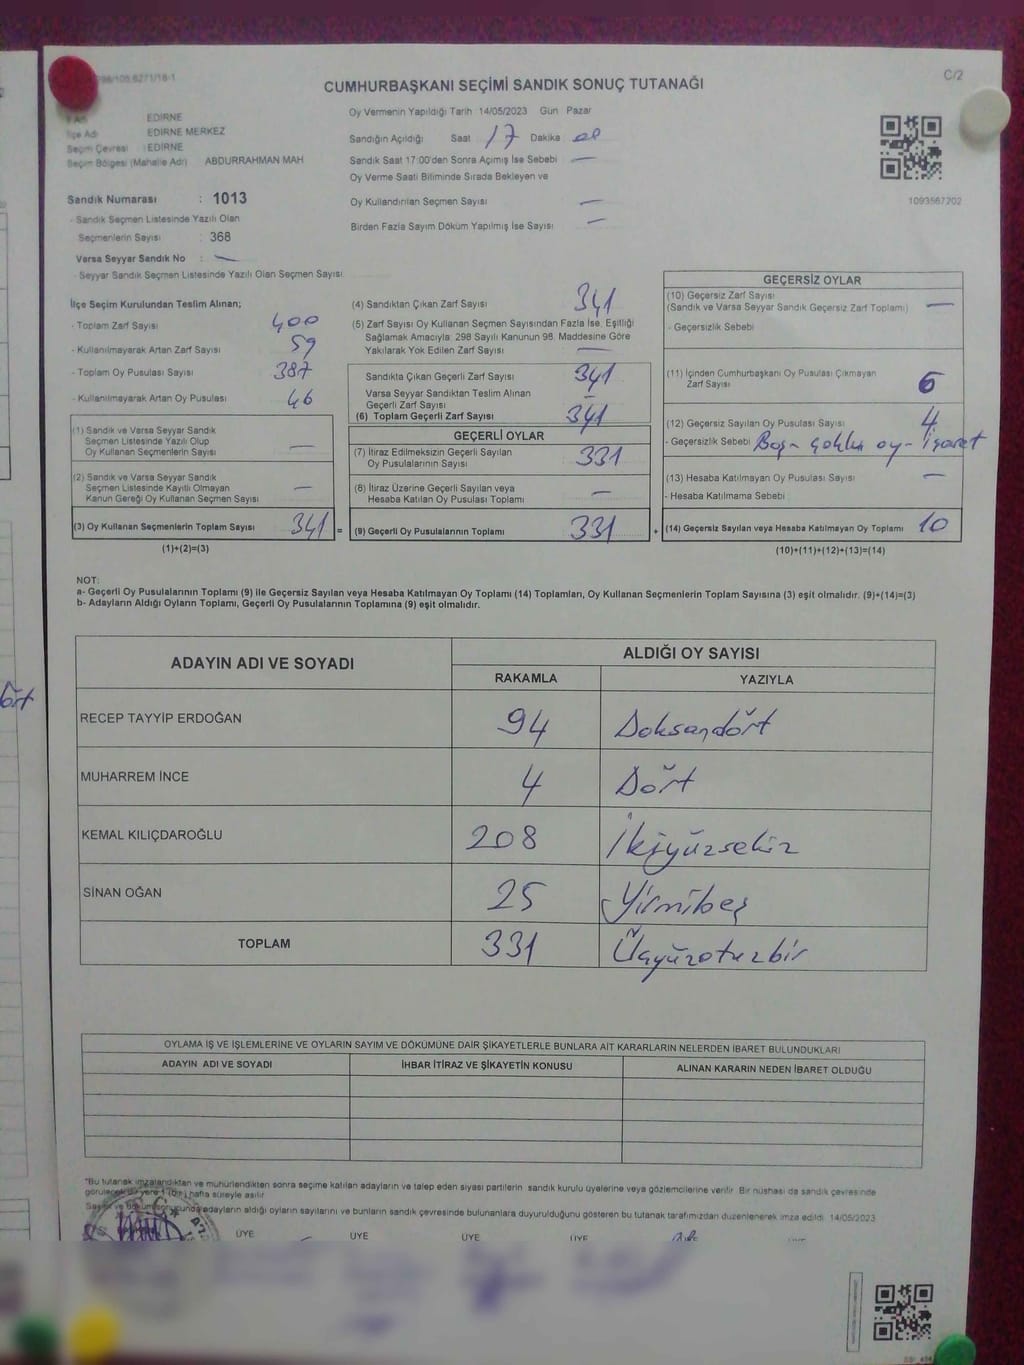 C/2
CUMHURBAŞKANI SEÇİMİ SANDIK SONUÇ TUTANAĞI
Oy Vermenin Yapıldığı Tarih 14/05/2023 Gün Pazar
EDİRNE
İlçe Adı EDİRNE MERKEZ
Seçim Çevresi : EDİRNE
Seçim Bölgesi (Mahalle Adı) ABDURRAHMAN MAH
Sandık Numarası : 1013
- Sandık Seçmen Listesinde Yazılı Olan
Seçmenlerin Sayısı : 368
Varsa Seyyar Sandık No : —
- Seyyar Sandık Seçmen Listesinde Yazılı Olan Seçmen Sayısı
Sandığın Açıldığı Saat 17 Dakika
Sandık Saat 17:00'den Sonra Açımış İse Sebebi —
Oy Verme Saati Bitiminde Sırada Bekleyen ve
Oy Kullandırılan Seçmen Sayısı —
Birden Fazla Sayım Döküm Yapılmış İse Sayısı —
1093567202
İlçe Seçim Kurulundan Teslim Alınan;
- Toplam Zarf Sayısı 400
- Kullanılmayarak Artan Zarf Sayısı 59
- Toplam Oy Pusulası Sayısı 387
- Kullanılmayarak Artan Oy Pusulası 46
(1) Sandık ve Varsa Seyyar Sandık
Seçmen Listesinde Yazılı Olup
Oy Kullanan Seçmenlerin Sayısı —
(2) Sandık ve Varsa Seyyar Sandık
Seçmen Listesinde Kayıtlı Olmayan
Kanun Gereği Oy Kullanan Seçmen Sayısı —
(3) Oy Kullanan Seçmenlerin Toplam Sayısı 341 =
(1)+(2)=(3)
(4) Sandıktan Çıkan Zarf Sayısı 341
(5) Zarf Sayısı Oy Kullanan Seçmen Sayısından Fazla İse, Eşitliği
Sağlamak Amacıyla; 298 Sayılı Kanunun 98. Maddesine Göre
Yakılarak Yok Edilen Zarf Sayısı —
Sandıkta Çıkan Geçerli Zarf Sayısı 341
Varsa Seyyar Sandıktan Teslim Alınan
Geçerli Zarf Sayısı
(6) Toplam Geçerli Zarf Sayısı 341
GEÇERLİ OYLAR
(7) İtiraz Edilmeksizin Geçerli Sayılan
Oy Pusulalarının Sayısı 331
(8) İtiraz Üzerine Geçerli Sayılan veya
Hesaba Katılan Oy Pusulası Toplamı —
(9) Geçerli Oy Pusulalarının Toplamı 331 +
GEÇERSİZ OYLAR
(10) Geçersiz Zarf Sayısı
(Sandık ve Varsa Seyyar Sandık Geçersiz Zarf Toplamı) —
- Geçersizlik Sebebi
(11) İçinden Cumhurbaşkanı Oy Pusulası Çıkmayan
Zarf Sayısı 6
(12) Geçersiz Sayılan Oy Pusulası Sayısı 4
- Geçersizlik Sebebi Boş - çoklu oy - işaret
(13) Hesaba Katılmayan Oy Pusulası Sayısı —
- Hesaba Katılmama Sebebi
(14) Geçersiz Sayılan veya Hesaba Katılmayan Oy Toplamı 10
(10)+(11)+(12)+(13)=(14)
NOT:
a- Geçerli Oy Pusulalarının Toplamı (9) ile Geçersiz Sayılan veya Hesaba Katılmayan Oy Toplamı (14) Toplamları, Oy Kullanan Seçmenlerin Toplam Sayısına (3) eşit olmalıdır. (9)+(14)=(3)
b- Adayların Aldığı Oyların Toplamı, Geçerli Oy Pusulalarının Toplamına (9) eşit olmalıdır.
ADAYIN ADI VE SOYADI
ALDIĞI OY SAYISI
RAKAMLA YAZIYLA
RECEP TAYYİP ERDOĞAN 94 Doksandört
MUHARREM İNCE 4 Dört
KEMAL KILIÇDAROĞLU 208 İkiyüzsekiz
SİNAN OĞAN 25 Yirmibeş
TOPLAM 331 Üçyüzotuzbir
OYLAMA İŞ VE İŞLEMLERİNE VE OYLARIN SAYIM VE DÖKÜMÜNE DAİR ŞİKAYETLERLE BUNLARA AİT KARARLARIN NELERDEN İBARET BULUNDUKLARI
ADAYIN ADI VE SOYADI İHBAR İTİRAZ VE ŞİKAYETİN KONUSU ALINAN KARARIN NEDEN İBARET OLDUĞU
"Bu tutanak imzalandıktan ve mühürlendikten sonra seçime katılan adayların ve talep eden siyasi partilerin sandık kurulu üyelerine veya gözlemcilerine verilir. Bir nüshası da sandık çevresinde
görülecek bir yere 1 (bir) hafta süreyle asılır
adayların aldığı oyların sayılarını ve bunların sandık çevresinde bulunanlara duyurulduğunu gösteren bu tutanak tarafımızdan düzenlenerek imza edildi. 14/05/2023
ÜYE ÜYE ÜYE ÜYE